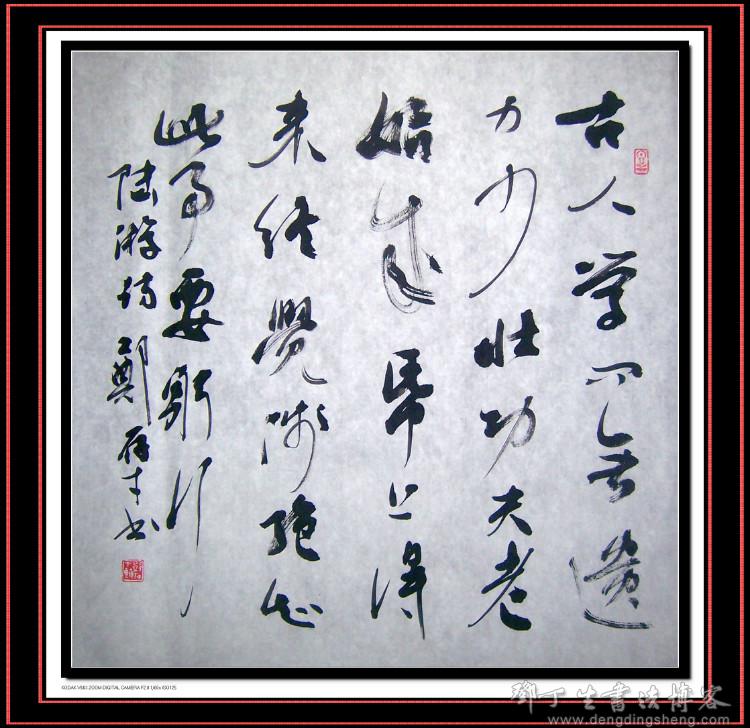 古人学问无遗
力少壮功夫老
始成帋上得
来终覺浅绝知
此事要躬行
陆游诗 鄭 才书
KODAK ZOOM DIGITAL CAMERA F2.8 1/60s ISO125
鄧丁生書法博客
www.dengdingsheng.com